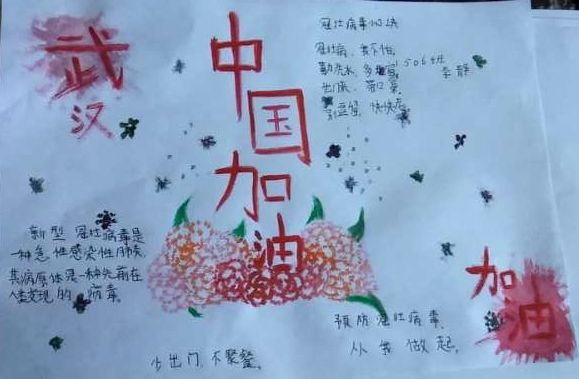 武
汉
中
国
加
油
冠状病毒心诀
冠状病、我不怕,
勤洗水,多通
1506班
李静
出门来、带口罩
新型冠状病毒是
一种急性感染性肺炎,
其病原体是一种先前在
人类发现的病毒
加
油
预防冠状病毒,
从我做起。
少出门,不聚餐。